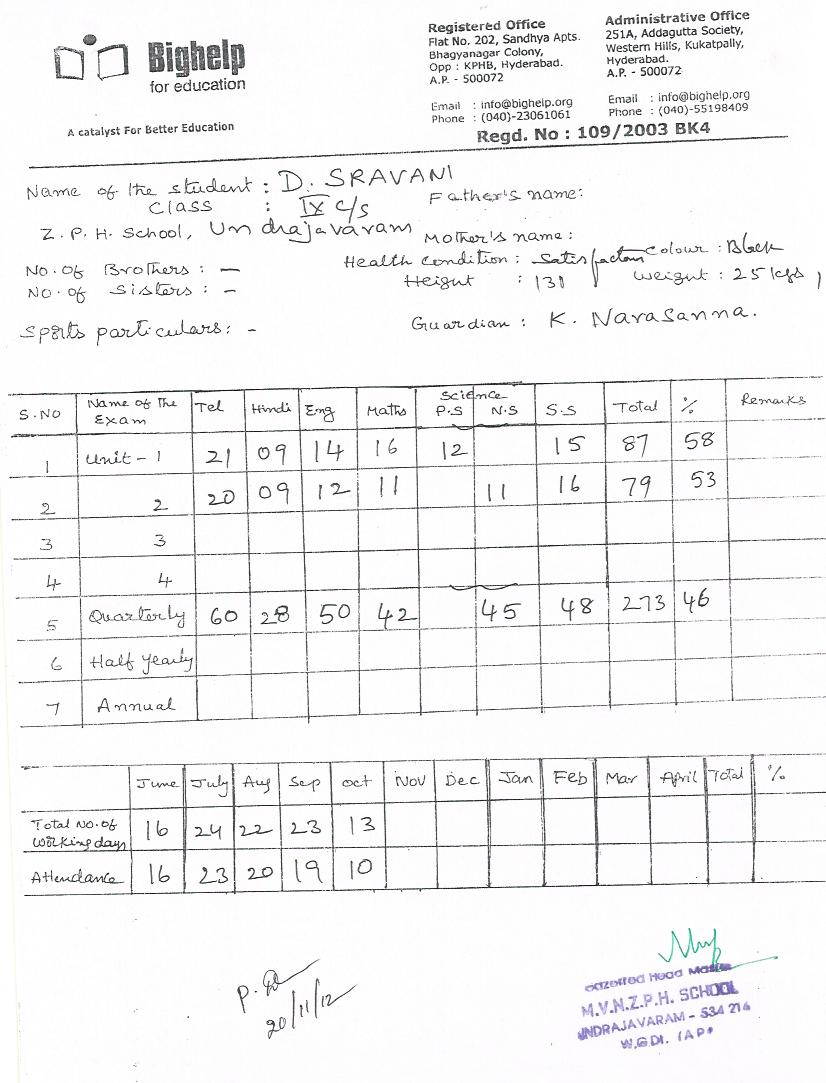 Bighelp
for education
A catalyst For Better Education
Registered Office
Flat No. 202, Sandhya Apts.
Bhagyanagar Colony,
Opp : KPHB, Hyderabad.
A.P. - 500072
Email : info@bighelp.org
Phone : (040)-23061061
Administrative Office
251A, Addagutta Society,
Western Hills, Kukatpally,
Hyderabad.
A.P. - 500072
Email : info@bighelp.org
Phone : (040)-55198409
Regd. No : 109/2003 BK4
Name of the student : D. SRAVANI
Class : IX C/s
Father's name:
Z. P. H. School, Undrajavaram
Mother's name:
No. of Brothers : -
Health condition : Satisfactory
Colour : Black
No. of Sisters : -
Height : 131
Weight : 25 kgs,
Sports particulars: -
Guardian : K. Narasanna.
S.No Name of the Exam Tel Hindi Eng Maths Science P.S N.S S.S Total % Remarks
1 Unit - 1 21 09 14 16 12 15 87 58
2 2 20 09 12 11 11 16 79 53
3 3
4 4
5 Quarterly 60 28 50 42 45 48 273 46
6 Half Yearly
7 Annual
June July Aug Sep Oct Nov Dec Jan Feb Mar April Total %
Total No. of working days 16 24 22 23 13
Attendance 16 23 20 19 10
20/11/12
Gazetted Head Master
M.V.N.Z.P.H. SCHOOL
UNDRAJAVARAM - 534 216
W.G.Dt. (A.P)